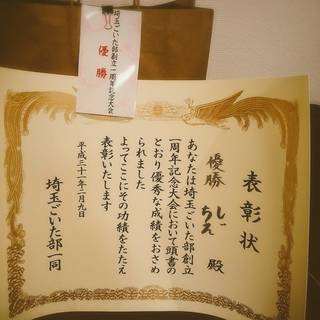 埼玉ごいた部創立一周年記念大会
優勝
表彰状
優勝 しっちえ 殿
あなたは埼玉ごいた部創立
一周年記念大会において頭書の
とおり優秀な成績をおさめ
られました
よってここにその功績をたたえ
表彰いたします
平成三十一年二月九日
埼玉ごいた部一同